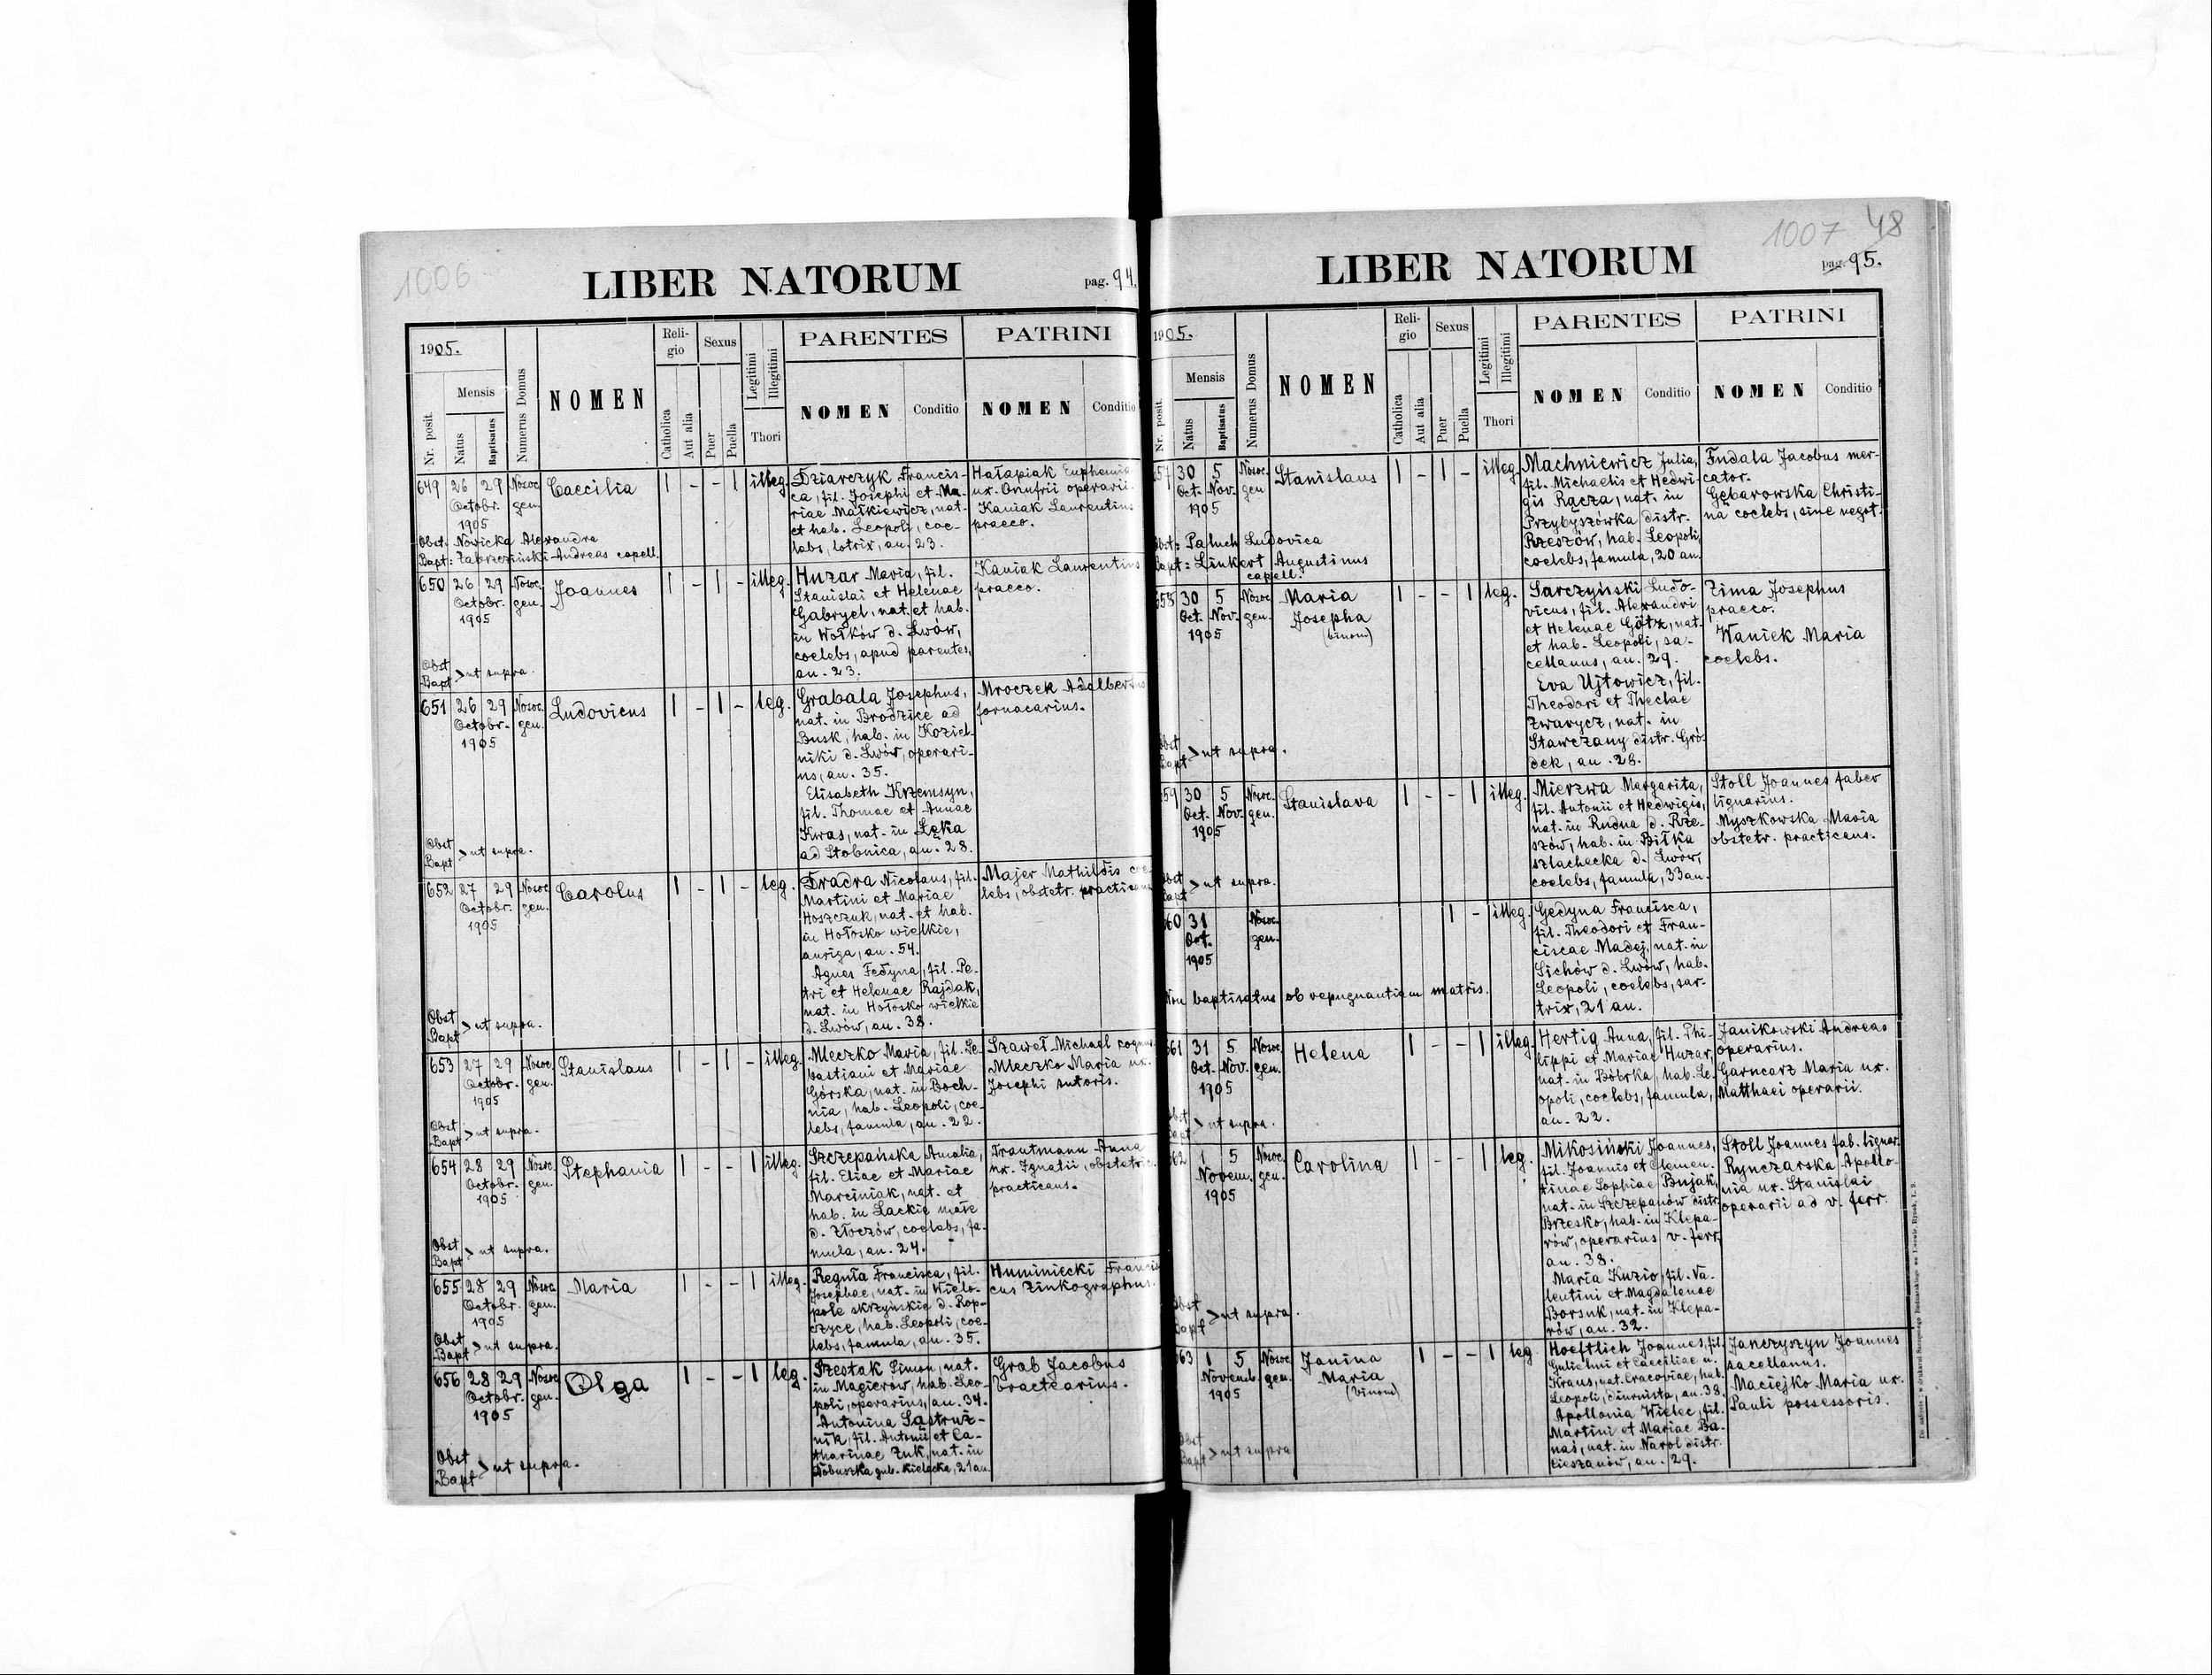 1006
LIBER NATORUM
pag. 94.
1905.
Mensis
Nr. posit.
Natus
Baptisatus
Numerus Domus
NOMEN
Reli-
gio
Catholica
Aut alia
Sexus
Puer
Puella
Legitimi
Illegitimi
Thori
PARENTES
NOMEN
Conditio
PATRINI
NOMEN
Conditio
649
26 29
Octobr.
1905
Nosoc.
gen.
Caecilia
1 - - 1
illeg.
Dziarczyk Francis-
ca, fil. Josephi et Ma-
riae Małkiewicz, nat.
et hab. Leopoli, coe-
lebs, lotrix, an. 23.
Hałapiak Euphemia
ux. Onufrii operarii.
Kaniak Laurentius
praeco.
Obst: Nowicka Alexandra
Bapt: Zabrzeziński Andreas capell.
650
26 29
Octobr.
1905
Nosoc.
gen.
Joannes
1 - 1 -
illeg.
Huzar Maria, fil.
Stanislai et Helenae
Gabryel, nat. et hab.
in Wołków d. Lwów,
coelebs, apud parentes,
an. 23.
Kaniak Laurentius
praeco.
Obst
Bapt > ut supra.
651
26 29
Octobr.
1905
Nosoc.
gen.
Ludovicus
1 - 1 -
leg.
Grabala Josephus,
nat. in Brodzice ad
Busk, hab. in Koziel-
niki d. Lwów, operari-
us, an. 35.
Elisabeth Krzemsyn,
fil. Thomae et Annae
Kwas, nat. in Łęka
ad Stobnica, an. 28.
Mroczek Adalbertus
fornacarius.
Obst
Bapt > ut supra.
652
27 29
Octobr.
1905
Nosoc.
gen.
Carolus
1 - 1 -
leg.
Dradra Nicolaus, fil.
Martini et Mariae
Hoszczuk, nat. et hab.
in Hołosko wielkie,
auriga, an. 54.
Agnes Fedyna, fil. Pe-
tri et Helenae Rajdak,
nat. in Hołosko wielkie
d. Lwów, an. 38.
Majer Mathildis coe-
lebs, obstetr. practicans
Obst
Bapt > ut supra.
653
27 29
Octobr.
1905
Nosoc.
gen.
Stanislaus
1 - 1 -
illeg.
Mleczko Maria, fil. Se-
bastiani et Mariae
Górska, nat. in Boch-
nia, hab. Leopoli, coe-
lebs, famula, an. 22.
Szaweł Michael
Mleczko Maria ux.
Josephi sutoris.
Obst
Bapt > ut supra.
654
28 29
Octobr.
1905
Nosoc.
gen.
Stephania
1 - - 1
illeg.
Szczepańska Amalia,
fil. Eliae et Mariae
Marciniak, nat. et
hab. in Lackie małe
d. Złoczów, coelebs, fa-
mula, an. 24.
Trautmann Anna
ux. Ignatii, obstetrix
practicans.
Obst
Bapt > ut supra.
655
28 29
Octobr.
1905
Nosoc.
gen.
Maria
1 - - 1
illeg.
Reguła Francisca, fil.
Josephae, nat. in Wielo-
pole skrzyńskie d. Rop-
czyce, hab. Leopoli, coe-
lebs, famula, an. 35.
Huminiecki Francis
cus zinkographus.
Obst
Bapt > ut supra.
656
28 29
Octobr.
1905
Nosoc.
gen.
Olga
1 - - 1
leg.
Szostak Simon, nat.
in Magierów, hab. Leo-
poli, operarius, an. 34.
Antonina Sastruż-
nik, fil. Antonii et Ca-
tharinae Żuk, nat. in
gub. Kielecka, 21 an.
Grab Jacobus
bractearius.
Obst
Bapt > ut supra.
1007 48
LIBER NATORUM
pag. 95.
1905.
Mensis
Nr. posit.
Natus
Baptisatus
Numerus Domus
NOMEN
Reli-
gio
Catholica
Aut alia
Sexus
Puer
Puella
Legitimi
Illegitimi
Thori
PARENTES
NOMEN
Conditio
PATRINI
NOMEN
Conditio
657
30 5
Oct. Nov.
1905
Nosoc.
gen.
Stanislaus
1 - 1 -
illeg.
Machniewicz Julia,
fil. Michaelis et Hedwi-
gis Rącza, nat. in
Przybyszówka distr.
Rzeszów, hab. Leopoli,
coelebs, famula, 20 an.
Fudala Jacobus mer-
cator.
Gębarowska Christi-
na coelebs, sine negot.
Obst: Paluch Ludovica
Bapt: Linkert Augustinus
capell.
658
30 5
Oct. Nov.
1905
Nosoc.
gen.
Maria
Josepha
(binom)
1 - - 1
leg.
Sarczyński Ludo-
vicus, fil. Alexandri
et Helenae Götz, nat.
et hab. Leopoli, sa-
cellanus, an. 29.
Eva Ujtowicz, fil.
Theodori et Theclae
Zwarycz, nat. in
Stawczany distr. Gró-
dek, an. 28.
Zima Josephus
praeco.
Waniek Maria
coelebs.
Obst
Bapt > ut supra.
659
30 5
Oct. Nov.
1905
Nosoc.
gen.
Stanislava
1 - - 1
illeg.
Mierzwa Margarita,
fil. Antonii et Hedwigis,
nat. in Rudna d. Rze-
szów, hab. in Biłka
szlachecka d. Lwów,
coelebs, famula, 33 an.
Stoll Joannes faber
lignarius.
Myszkowska Maria
obstetr. practicans.
Obst
Bapt > ut supra.
660
31
Oct.
1905
Nosoc.
gen.
1 -
illeg.
Gedyna Francisca,
fil. Theodori et Fran-
ciscae Madej, nat. in
Sichów d. Lwów, hab.
Leopoli, coelebs, sar-
trix, 21 an.
Non baptisatus ob repugnantiam matris.
661
31 5
Oct. Nov.
1905
Nosoc.
gen.
Helena
1 - - 1
illeg.
Hertig Anna, fil. Phi-
lippi et Mariae Huzar,
nat. in Bóbrka, hab. Le-
opoli, coelebs, famula,
an. 22.
Janikowski Andreas
operarius.
Garncarz Maria ux.
Matthaei operarii.
Obst
Bapt > ut supra.
662
1 5
Novem.
1905
Nosoc.
gen.
Carolina
1 - - 1
leg.
Mikosiński Joannes,
fil. Joannis et Clemen-
tinae Sophiae Bujak,
nat. in Szczepanów distr.
Brzesko, hab. in Klepa-
rów, operarius v. ferr.
an. 38.
Maria Kuzio, fil. Va-
lentini et Magdalenae
Borsuk, nat. in Klepa-
rów, an. 32.
Stoll Joannes fab. lignar.
Rynczarska Apollo-
nia ux. Stanislai
operarii ad v. ferr.
Obst
Bapt > ut supra.
663
1 5
Novemb.
1905
Nosoc.
gen.
Janina
Maria
(binom)
1 - - 1
leg.
Hoeftlich Joannes, fil.
Gulielmi et Caeciliae
Kraus, nat. Cracoviae, hab.
Leopoli, diurnista, an. 38.
Apollonia Wielec, fil.
Martini et Mariae Ba-
naś, nat. in Narol distr.
Cieszanów, an. 29.
Janczyszyn Joannes
sacellanus.
Maciejko Maria ux.
Pauli possessoris.
Obst
Bapt > ut supra